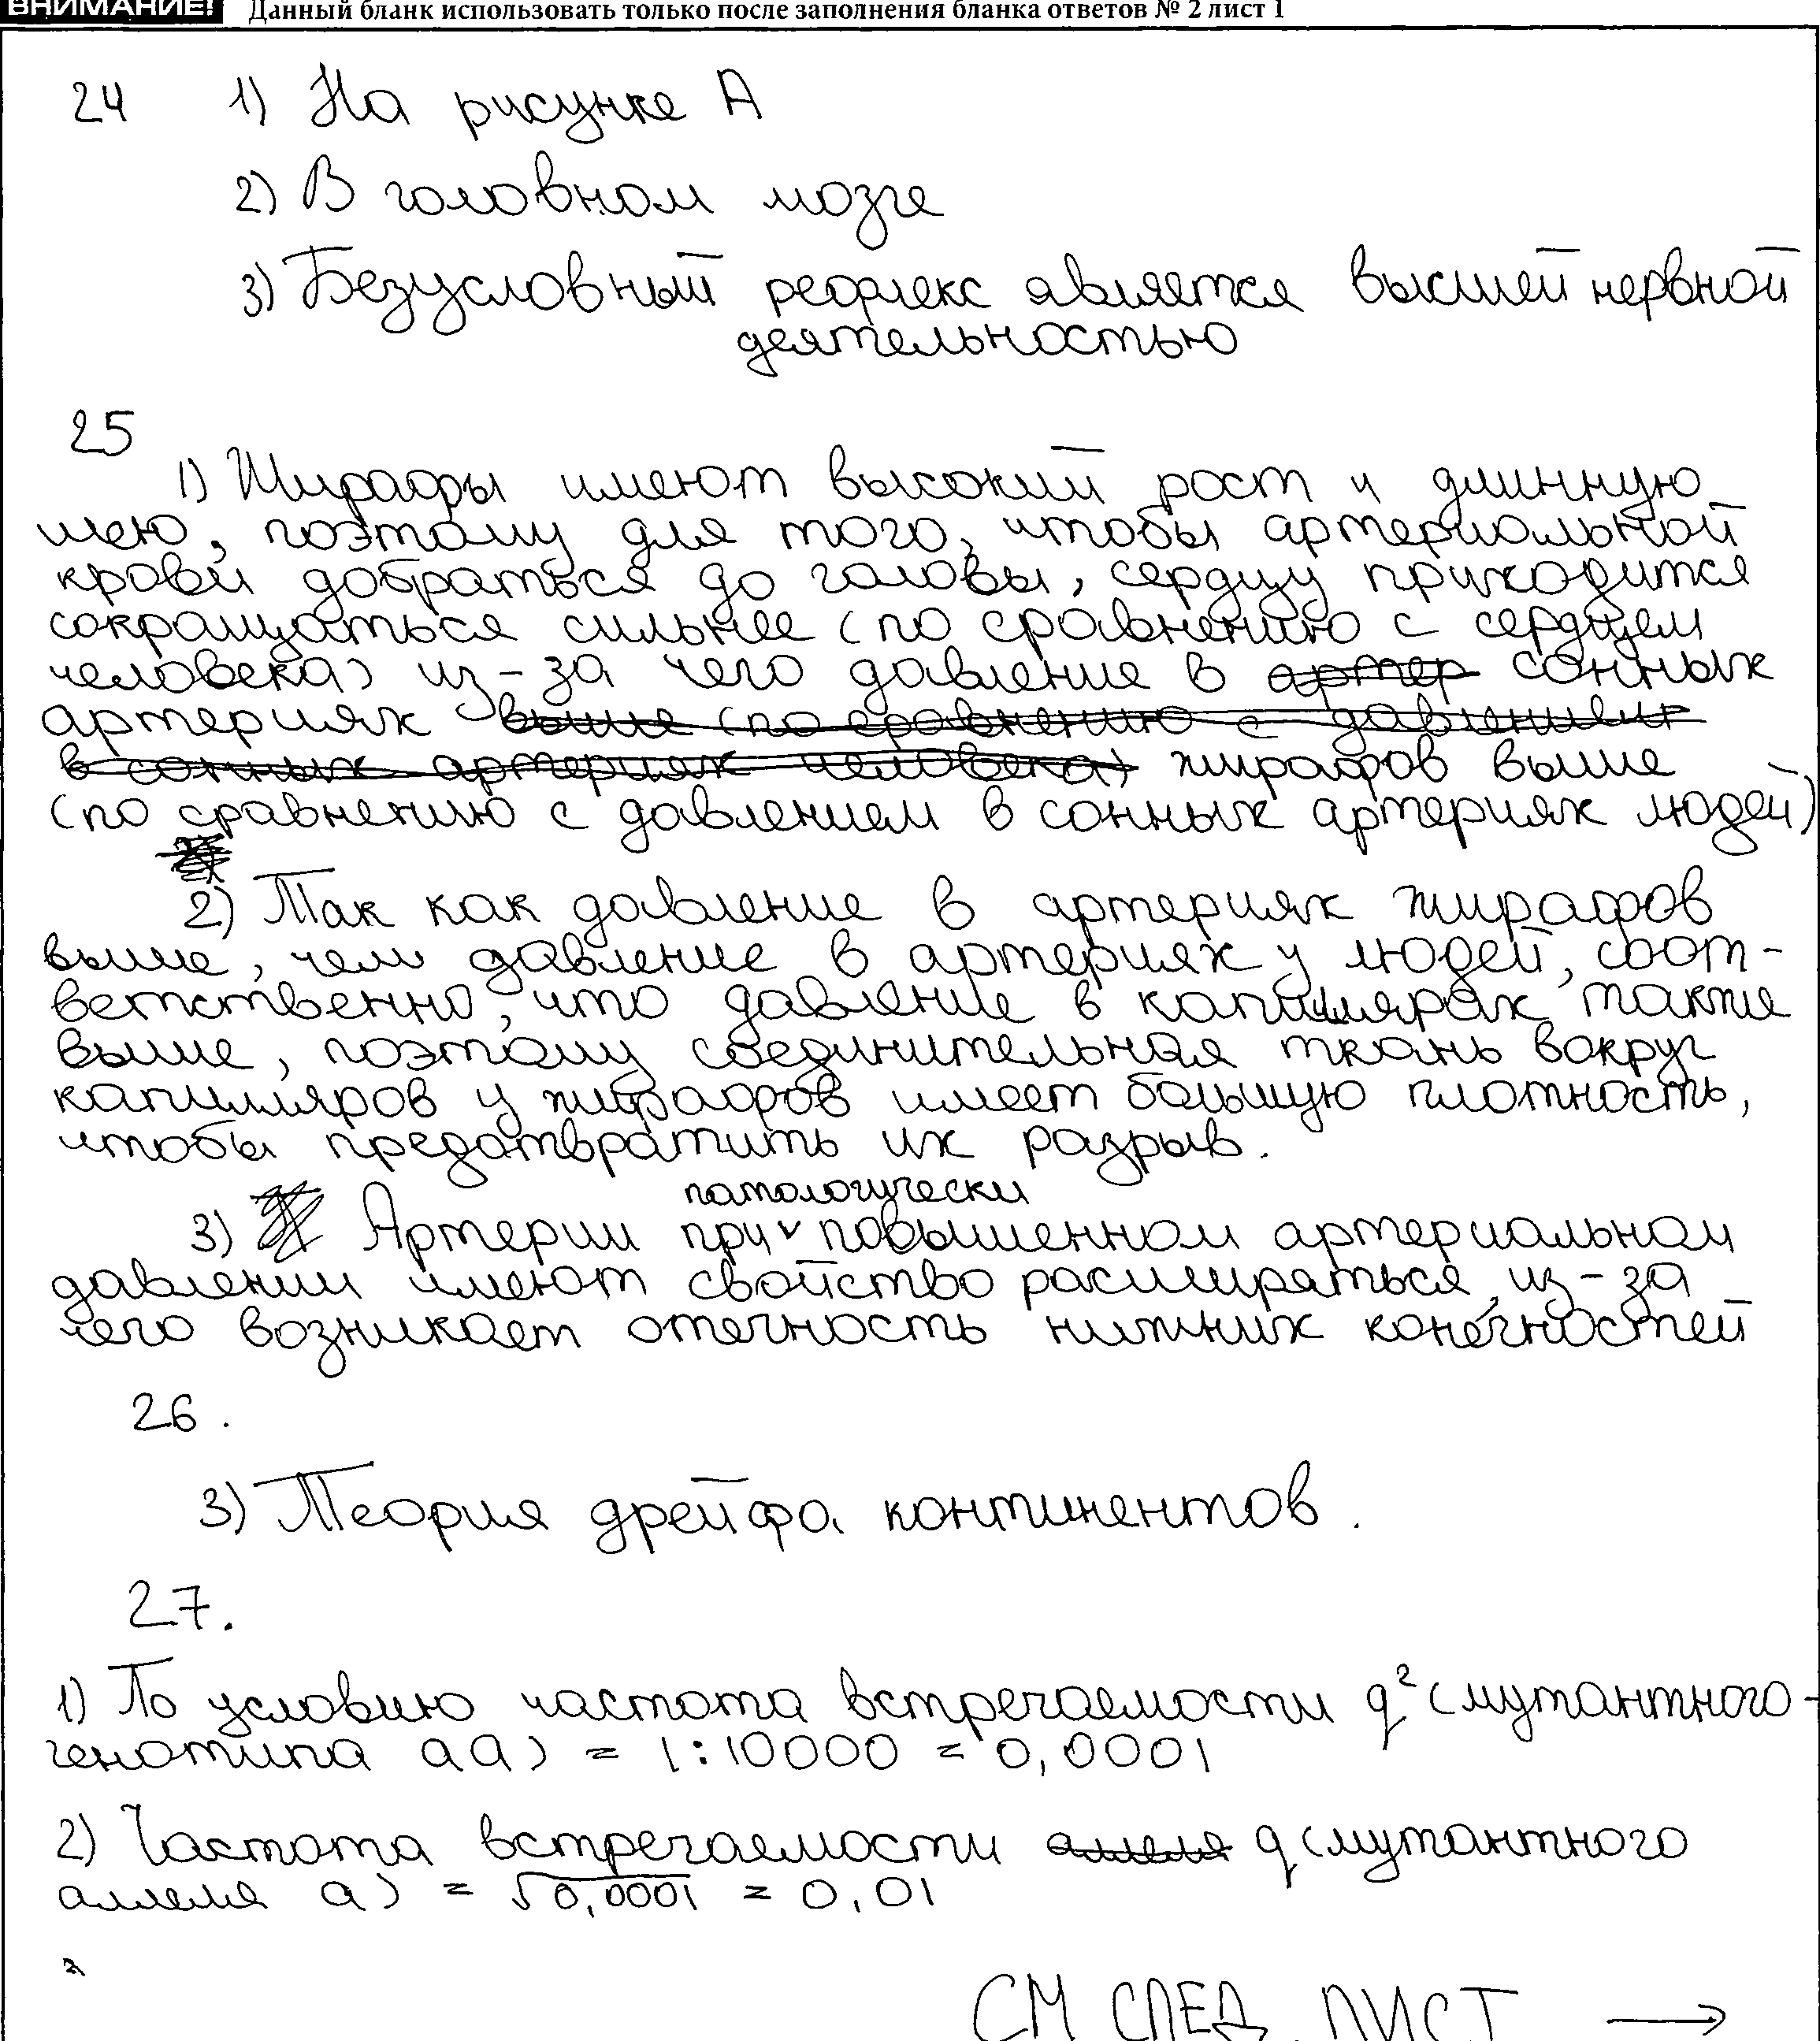 ВНИМАНИЕ! Данный бланк использовать только после заполнения бланка ответов № 2 лист 1
24 1) На рисунке А
2) В головном мозге
3) Безусловный рефлекс является высшей нервной
деятельностью
25
1) Жирафы имеют высокий рост и длинную
шею, поэтому для того, чтобы артериальной
крови добраться до головы, сердцу приходится
сокращаться сильнее (по сравнению с сердцем
человека) из-за чего давление в артер сонных
артериях выше (по сравнению с давлением
в сонных артериях человека) жирафов выше
(по сравнению с давлением в сонных артериях людей)
2) Так как давление в артериях жирафов
выше, чем давление в артериях у людей, соот-
ветственно, что давление в капиллярах также
выше, поэтому соединительная ткань вокруг
капилляров у жирафов имеет большую плотность,
чтобы предотвратить их разрыв.
патологически
3) Артерии при повышенном артериальном
давлении имеют свойство расширяться, из-за
чего возникает отечность нижних конечностей
26.
3) Теория дрейфа континентов.
27.
1) По условию частота встречаемости q² (мутантного-
генотипа аа) = 1:10000 = 0,0001
2) Частота встречаемости аллеля q (мутантного
аллеля а) = √0,0001 = 0,01
СМ СЛЕД. ЛИСТ →